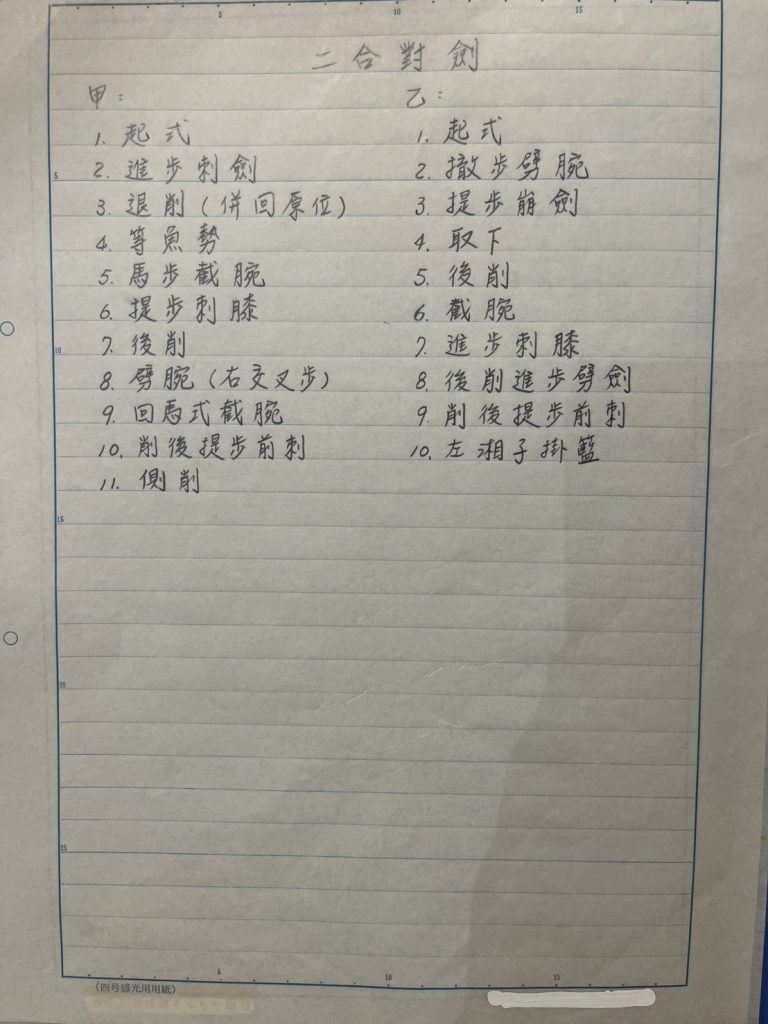 5 10 15
二合對劍
甲: 乙:
1. 起式 1. 起式
2. 進步刺劍 2. 撤步劈腕
3. 退削(併回原位) 3. 提步崩劍
4. 等魚勢 4. 取下
5. 馬步截腕 5. 後削
6. 提步刺膝 6. 截腕
7. 後削 7. 進步刺膝
8. 劈腕(右交叉步) 8. 後削進步劈劍
9. 回馬式截腕 9. 削後提步前刺
10. 削後提步前刺 10. 左湘子掛籃
11. 側削
5
10
15
20
25
5 10 15
(四号感光用用紙)